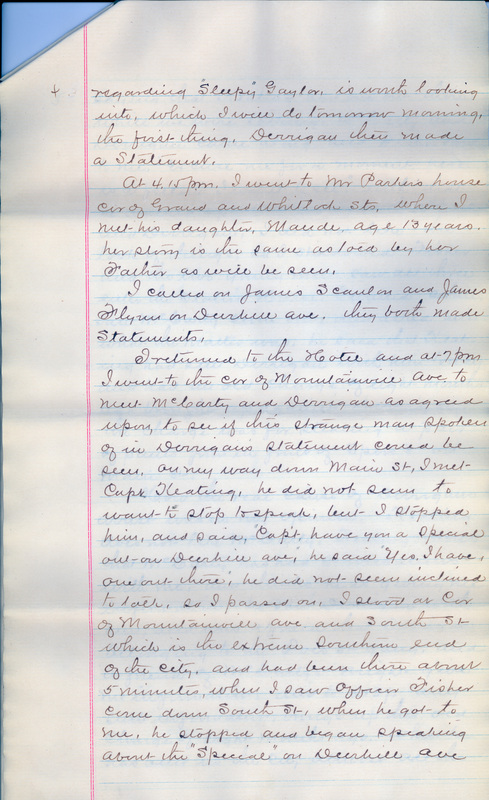 + regarding "Sleepy" Gaylor, is worth looking
into, which I will do tomorrow morning,
the first thing, Derrigan then made
a Statement.
At 4.15 pm. I went to Mr Parkers house
cor of Grand and Whitlock Sts, where I
met his daughter, Maude, age 13 years.
her story is the same as told by her
Father as will be seen.
I called on James Scanlon and James
Flynn on Deerhill ave. they both made
Statements.
I returned to the Hotel and at 7 pm
I went to the cor of Mountainville Ave. to
meet McCarty and Derrigan as agreed
upon, to see if this strange man spoken
of in Derrigans statement could be
seen. on my way down Main St, I met
Capt Keating, he did not seem to
want to stop to speak, but I stopped
him, and said, "Capt, have you a Special
out on Deerhill ave," he said "Yes, I have,
one out there," he did not seem inclined
to talk, so I passed on. I stood at Cor
of Mountainville ave and South St
which is the extreme Southern end
of the city. and had been there about
5 minutes, when I saw Officer Fisher
come down South St, when he got to
me, he stopped and began speaking
about the "Special" on Deerhill ave